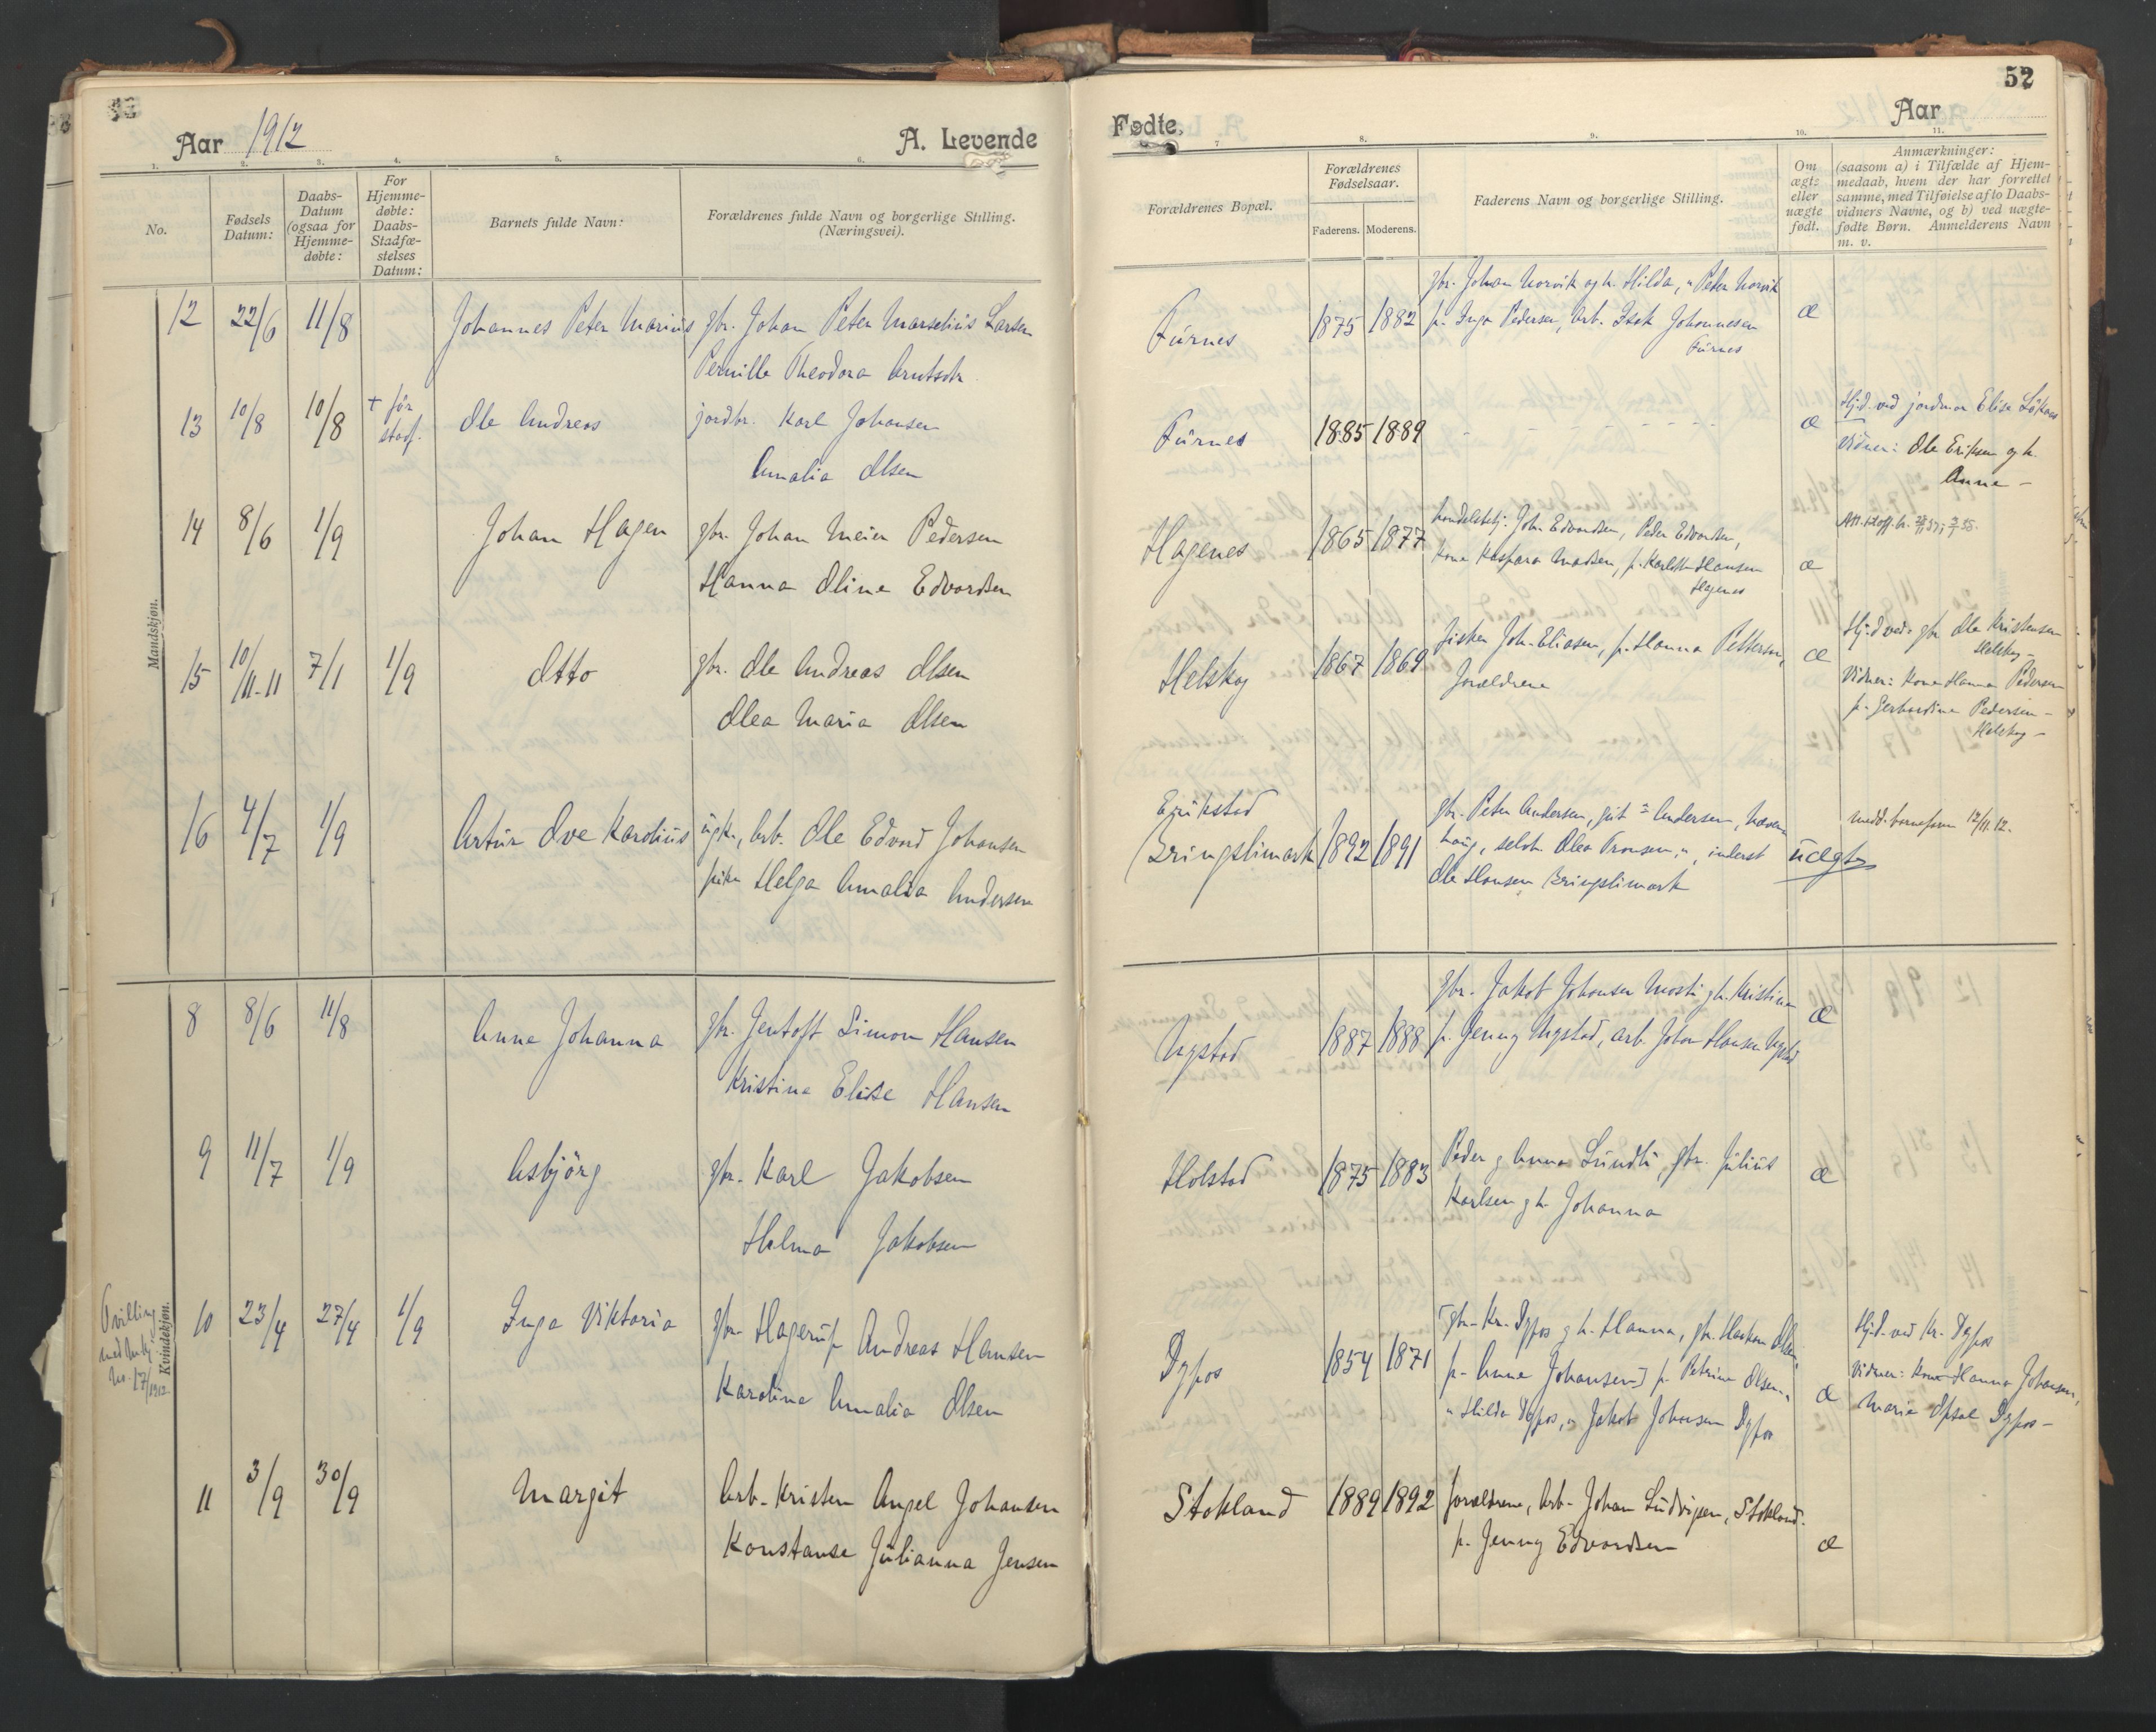 52
Aar 1912
A. Levende
Fødte,
Aar
1.
2.
3.
4.
5.
6.
7
8.
9.
10.
11.
No.
Fødsels
Datum:
Daabs-
Datum
(ogsaa for
Hjemme-
døbte:
For
Hjemme-
døbte:
Daabs-
Stadfæ-
stelses
Datum:
Barnets fulde Navn:
Forældrenes fulde Navn og borgerlige Stilling.
(Næringsvei).
Forældrenes Bopæl.
Forældrenes
Fødselsaar.
Faderens. Moderens.
Faderens Navn og borgerlige Stilling.
Om
ægte
eller
uægte
født.
Anmærkninger:
(saasom a) i Tilfælde af Hjem-
medaab, hvem der har forrettet
samme, med Tilføielse af to Daabs-
vidners Navne, og b) ved uægte-
fødte Børn. Anmelderens Navn
m. v.
Mandskjøn.
12 22/6 11/8 Johannes Peter Marius gbr. Johan Peter Marselius Larsen
Pernille Theodora Arntsdtr.
Furnes 1875 1882 gbr. Johan Norvik og h. Hilda, " Peter Norvik
p. Inga Pedersen, arb. Isak Johannesen
Furnes
æ
13 10/8 10/8 + før
stadf.
Ole Andreas jordbr. Karl Johansen
Amalia Olsen
Furnes 1885 1889 - - - - - - æ
Hjd. ved jordmor Elise
Vidner: Ole Eriksen og h.
Anne -
14 8/6 1/9 Johan Hagen gbr. Johan Meier Pedersen
Hanna Oline Edvardsen
Hagenes 1865 1877 handelsbtj. John Edvardsen, Peder Edvardsen,
kone Kaspara Madsen, p. Hansen
Hagenes
æ
15 10/11-11 7/1 1/9 Otto gbr. Ole Andreas Olsen
Olea Maria Olsen
Helskog 1867 1869 fisker Joh. Eliasen, p. Hanna Pettersen,
Forældrene
æ
Hjd ved gbr Ole Kristensen
Helskog -
Vidner: Kone Hanna Pedersen
p. Gerhardine Pedersen -
Helskog -
16 4/7 1/9 Artur Ove Karolius ugk., arb. Ole Edvard Johansen
pike Helga Amalia Andersen
Erikstad
Kringslimark 1892 1891 gbr. Peter Andersen, gut " Andersen,
haug, selvh. Olea Tronsen, ", inderst
Ole Hansen Kringslimark
uægte
medd. 12/11 12.
Kvindekjøn.
8 8/6 11/8 Anne Johanna gbr. Jentoft Simon Hansen
Kristine Elise Hansen
Nygstad 1887 1888 gbr. Jakob Johansen Mosti g h. Kristine
p. Jenny Nygstad, arb. Johan Hansen Nygstad
æ
9 11/7 1/9 Asbjörg gbr. Karl Jakobsen
Helma Jakobsen
Holstad 1875 1883 Peder g Anna Lundli, gbr. Julius
Karlsen g h. Johanna
æ
Tvilling
med
No. 17/1912
10 23/4 27/4 1/9 Inga Viktoria gbr. Hagerup Andreas Hansen
Karoline Amalia Olsen
Dypos 1854 1871 [gbr. Kr. Dypos g h. Hanna, gbr. Haakon Olsen,
p. Anne Johansen] p. Petrine Olsen,
" Hilda Dypos, " Jakob Johansen Dypos
æ
Hjd. ved Kr. Dypos
Vidner: Kone Hanna Johansen,
Marie Opsal Dypos -
11 3/9 30/9 Margit Arb. Kristen Angel Johansen
Konstanse Julianna Jensen
Stokland 1889 1892 forældrene, Arb. Johan Ludvigsen, Stokland.
p. Jenny Edvardsen
æ